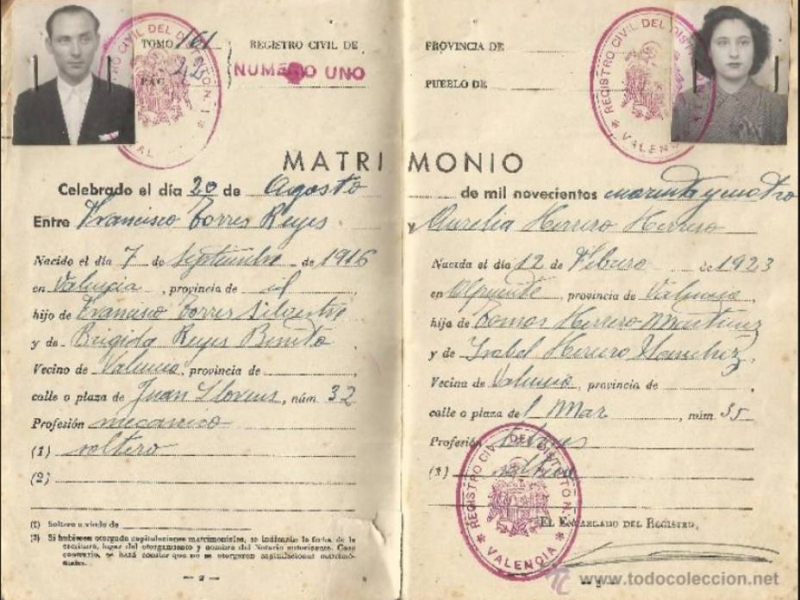 TOMO 161
PAG. 213
REGISTRO CIVIL DE
NUMERO UNO
MATRI
Celebrado el día 20 de Agosto
Entre Francisco Torres Reyes
Nacido el día 7 de Septiembre de 1916
en Valencia, provincia de id
hijo de Francisco Torres Silvestre
y de Brigida Reyes Benito
Vecino de Valencia, provincia de
calle o plaza de Juan Llorens, núm. 32
Profesión mecanico
(1) soltero
(2)
(1) Soltero o viudo de
(2) Si hubiesen otorgado capitulaciones matrimoniales, se indicarán la fecha de la escritura, lugar del otorgamiento y nombre del Notario autorizante. Caso contrario, se hará constar que no se otorgaron capitulaciones matrimoniales.
— 2 —
PROVINCIA DE
PUEBLO DE
MONIO
de mil novecientos cuarenta y cuatro
y Aurelia Herrero Herrero
Nacida el día 12 de Febrero de 1923
en Alpuente, provincia de Valencia
hija de Tomas Herrero Martinez
y de Isabel Herrero Sanchez
Vecina de Valencia, provincia de
calle o plaza del Mar, núm. 35
Profesión
(1) soltera
EL ENCARGADO DEL REGISTRO,
REGISTRO CIVIL DEL DISTRITO N.º 1
VALENCIA
REGISTRO CIVIL DEL DISTRITO N.º 1
VALENCIA
www.todocoleccion.net